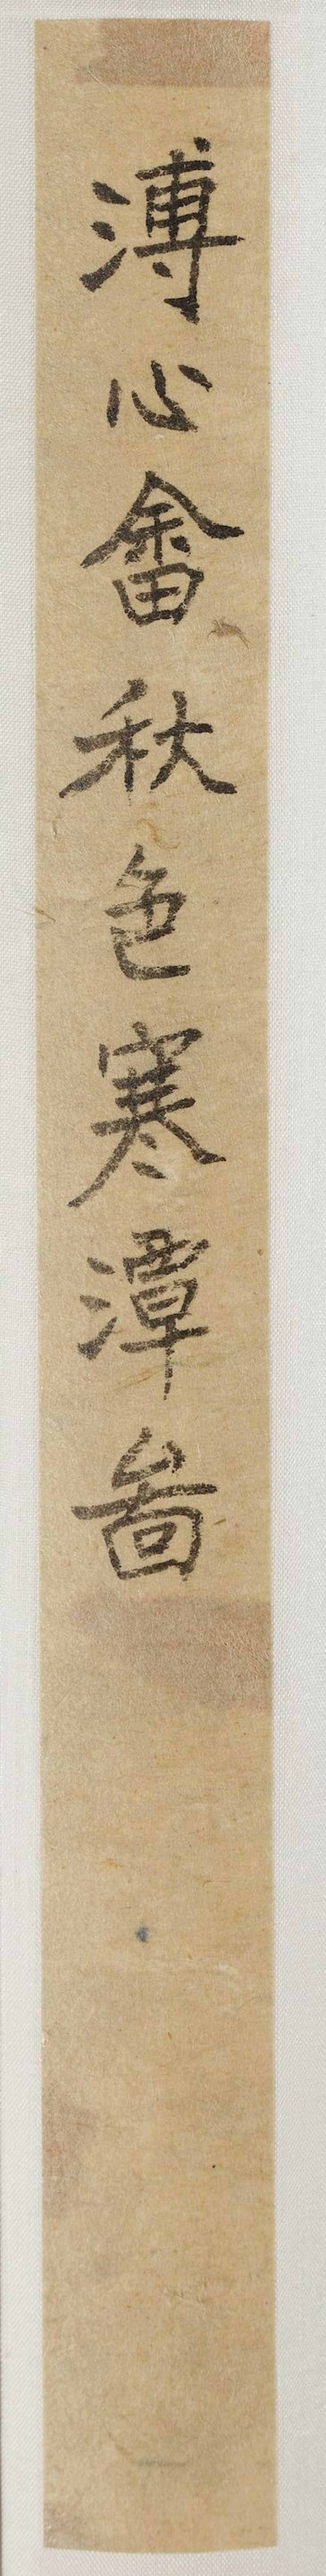 溥心畬秋色寒潭啚